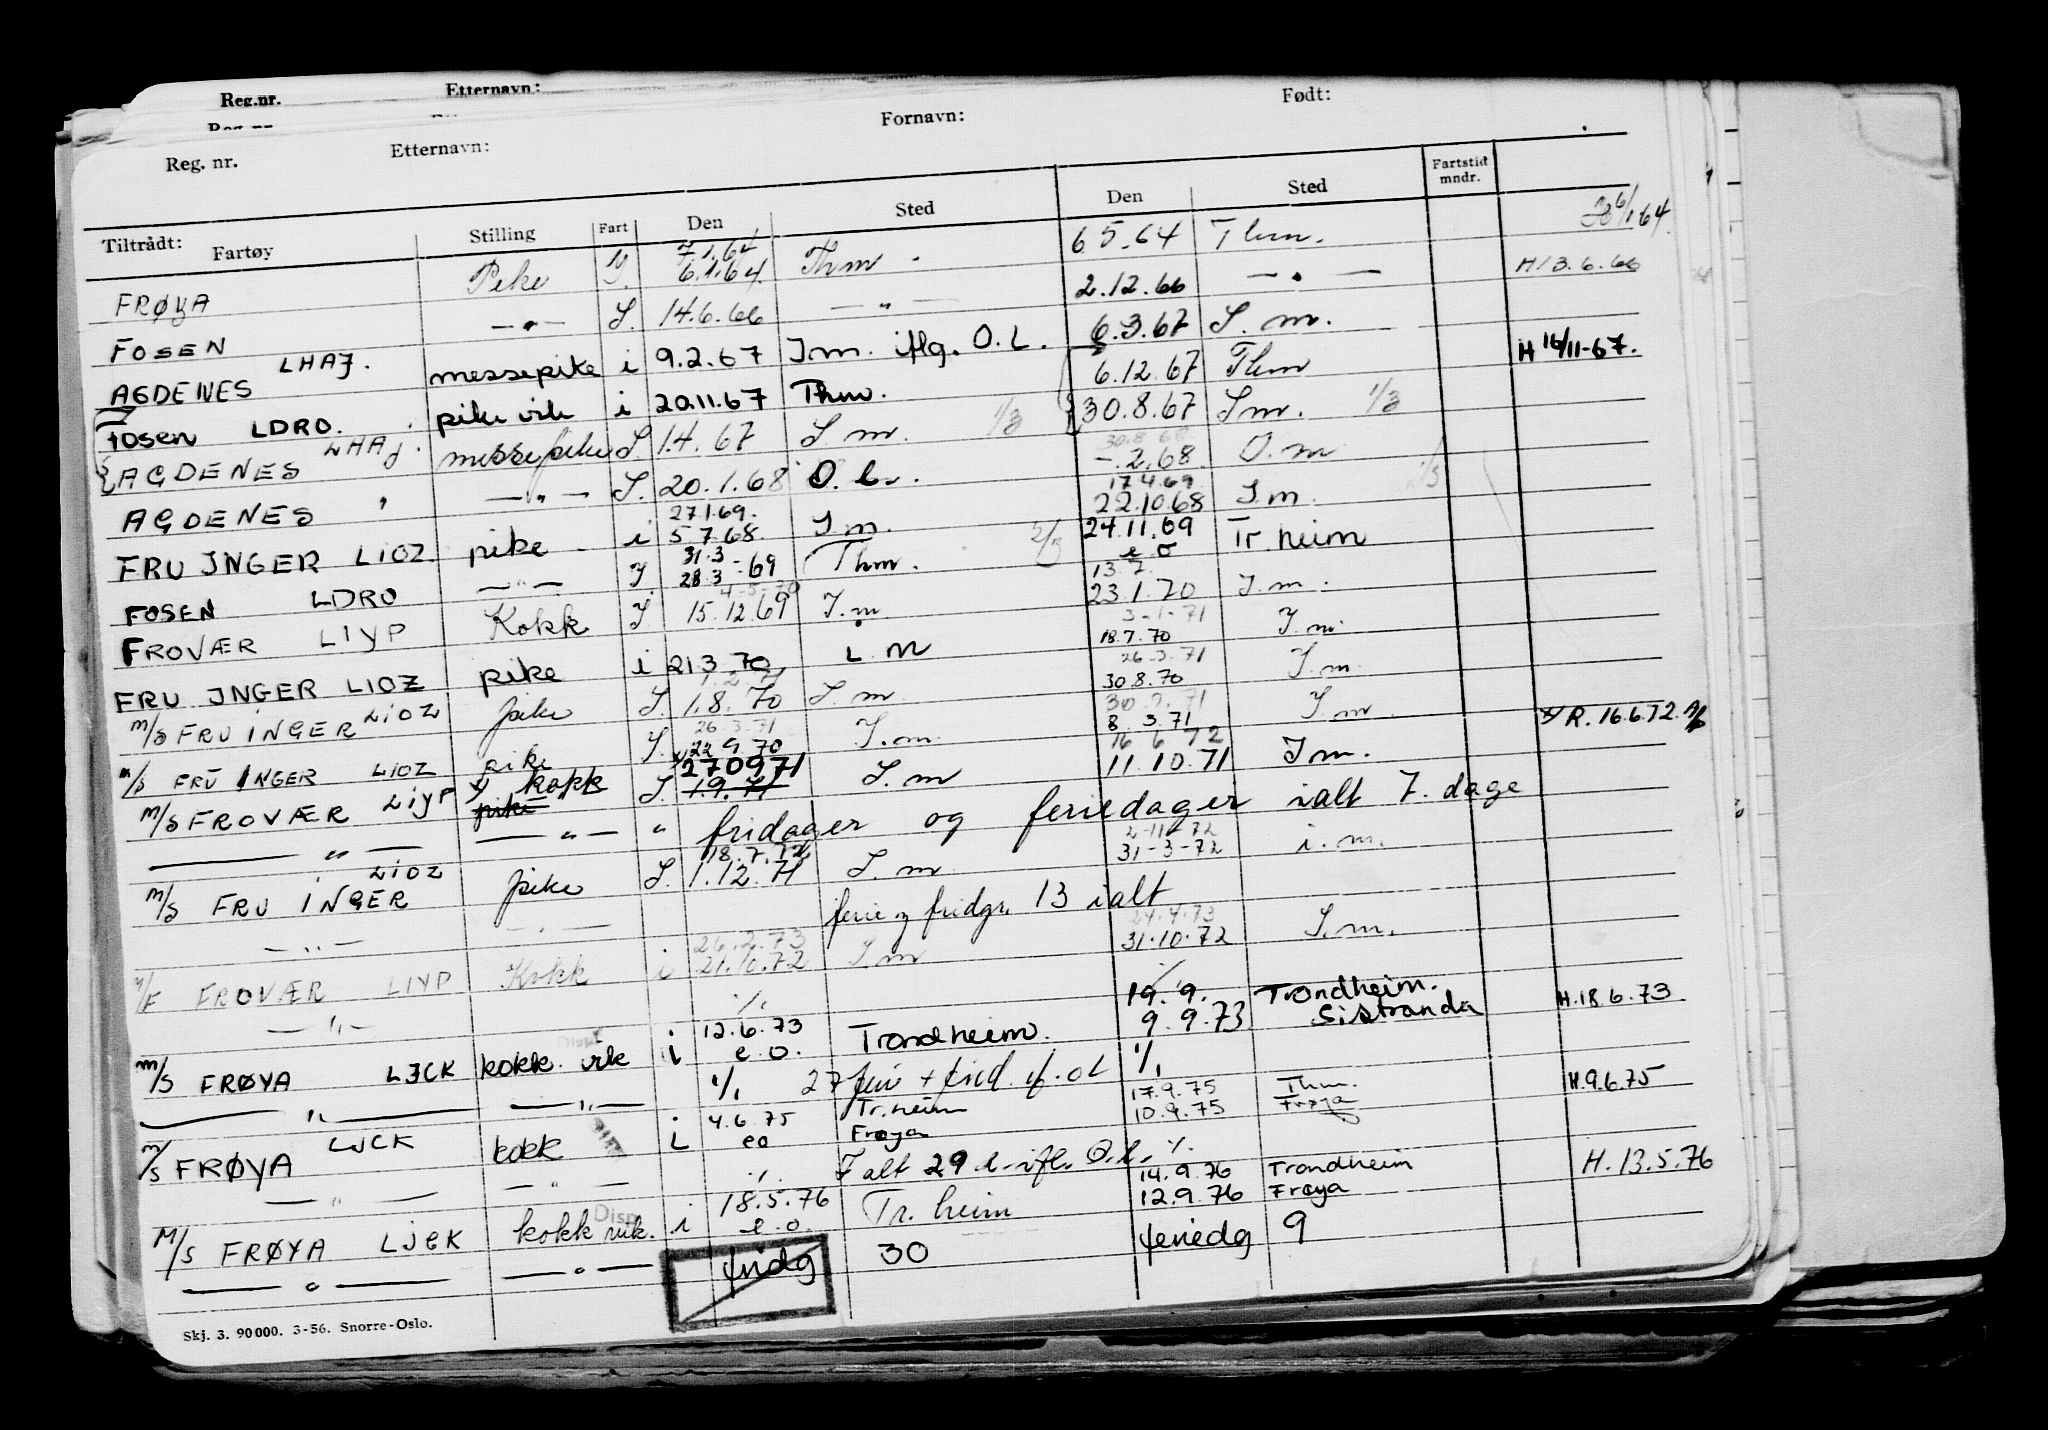 Reg.nr. Etternavn:
Reg. nr. Etternavn: Fornavn: Født:
Tiltrådt: Fartøy Stilling Fart Den Sted Den Sted Fartstid mndr.
7.1.64 6/1.64
FRØYA Pike 6.1.64. Thm. 6 5.64 Thm.
FOSEN — " — S. 14.6.66 — " — 2.12.66 — " — H 13.6.66
AGDENES LHAJ. messepike i 9.2.67 I m. iflg. O.L. 6.3.67 S. m.
Fosen LDRO. pike vik i 20.11.67 Thm. 6.12.67 Thm H 16/11-67.
AGDENES LHAJ messepike S 1.4.67 S. m. 1/3 30.8.67 S m. 1/3
30.8.68
AGDENES " — " — S. 20.1.68 O. L. –.2.68. O. m
27.1.69. 17.4.69
FRU INGER LIOZ. pike i 5.7.68. I m. 22.10.68 I m.
31.3 24.11.69
FOSEN LDRO — " — 28.3 - 69 Thm. e. o Tr. heim
4-5-70 13.7.
FROVÆR LIYP Kokk 15.12.69 I. m 23.1.70 I. m.
3-1-71
FRU INGER LIOZ pike i 21.3.70 i. m 18.7.70 I. m.
1.2.71 26-3.71
M/S FRU INGER LIOZ pike S. 1.8.70 S. m 30.8.70 I. m.
26.3.71 71
M/S FRU INGER LIOZ pike 22.9.70 I. m. 8. 3.71 I. m.
270971 16 6 72
M/S FROVÆR LIYP x) kokk pike S. 1.9.71 S. m 11.10.71 I m. x) R. 16.6.72.
— " — — " — " fridager og feriedager ialt 7. dage
18.7.72 2-11-72
M/S FRU INGER LIOZ pike S. 1.12.71 S. m 31-3-72 i. m.
— " — — " — ferie og fridgr. 13 ialt
26.2.73 24.4.73
M/F FROVÆR LIYP Kokk i 21.10.72 I. m 31.10.72 I. m.
— " — ./. ./.
i 12.6.73 19. 9. Trondheim.
M/S FRØYA LJCK kokk vik i e. o. Trondheim. 9.9.73 Sistranda H.18.6.73
— " — — " — ./. 27 feri + frid. if. OL ./.
i 4.6.75 Tr. heim 17.9.75 Thm.
M/S FRØYA LJCK kokk i eo Frøya 10.9.75 Frøya H.9.6.75
— " — — " — ./. I alt 29 d. ifl. O.L. ./.
Disp 18.5.76 14.9.76 Trondheim
M/S FRØYA LJCK kokk vik. i e. o. Tr. heim 12.9.76 Frøya H. 13.5.76
— " — — " — fridg 30 feriedg 9
Skj. 3. 90000. 3-56. Snorre-Oslo.